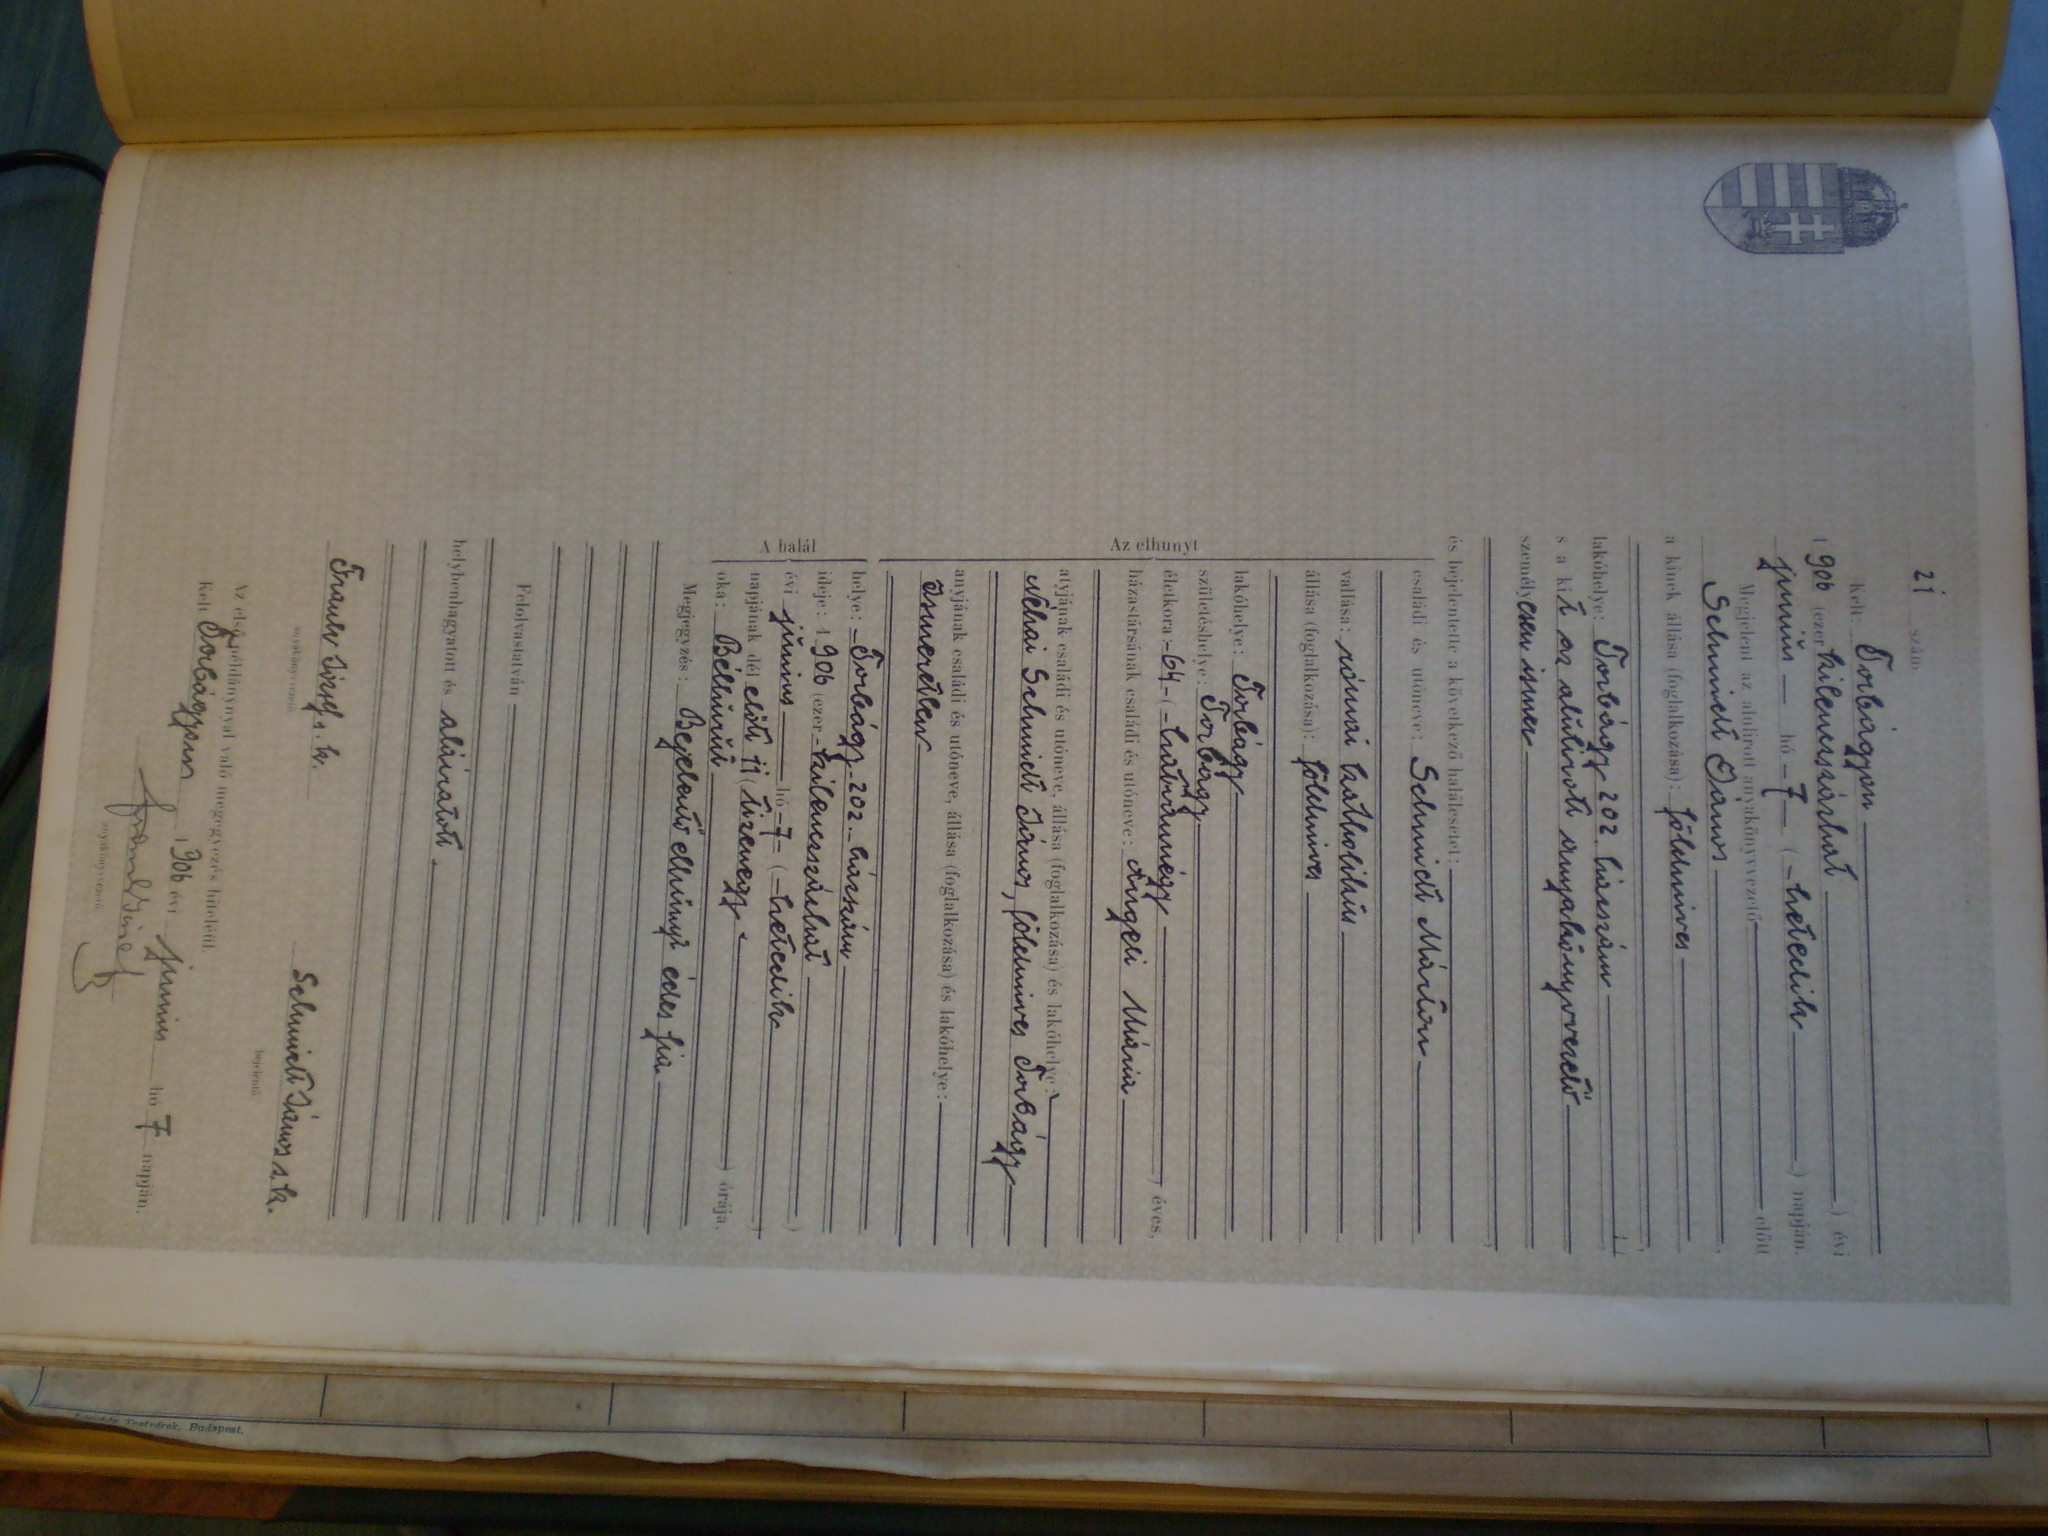 21 szám
Kelt: Torbágyon
1906 (ezer kilencszázhat) évi
június hó 7 (hetedik) napján.
Megjelent az alulirott anyakönyvvezető előtt
Schmidt János
a kinek állása (foglalkozása): földmives
lakóhelye: Torbágy 202. házszám
s a kit az alulirott anyakönyvvezető
személyesen ismer
és bejelentette a következő halálesetet:
Az elhunyt
családi és utóneve: Schmidt Márton
vallása: római katholikus
állása (foglalkozása): földmives
lakóhelye: Torbágy
születéshelye: Torbágy
életkora 64 (hatvannégy) éves,
házastársának családi és utóneve: Angeli Mária
atyjának családi és utóneve, állása (foglalkozása) és lakóhelye:
Néhai Schmidt János, földmives Torbágy
anyjának családi és utóneve, állása (foglalkozása) és lakóhelye:
Ismeretlen
A halál
helye: Torbágy 202. házszám
ideje: 1906 (ezer kilencszázhat)
évi június hó 7 (hetedik)
napjának dél előtti 11 (tizenegy) órája,
oka: Bélhurut
Megjegyzés: Bejelentő elhunyt édes fia
Felolvastatván
helybenhagyatott és aláiratott.
József s. k.
anyakönyvvezető
Schmidt János s. k.
bejelentő
Az első példánynyal való megegyezés hiteléül.
Kelt Torbágyon 1906 évi június hó 7 napján.
anyakönyvvezető
Testvérek. Budapest.